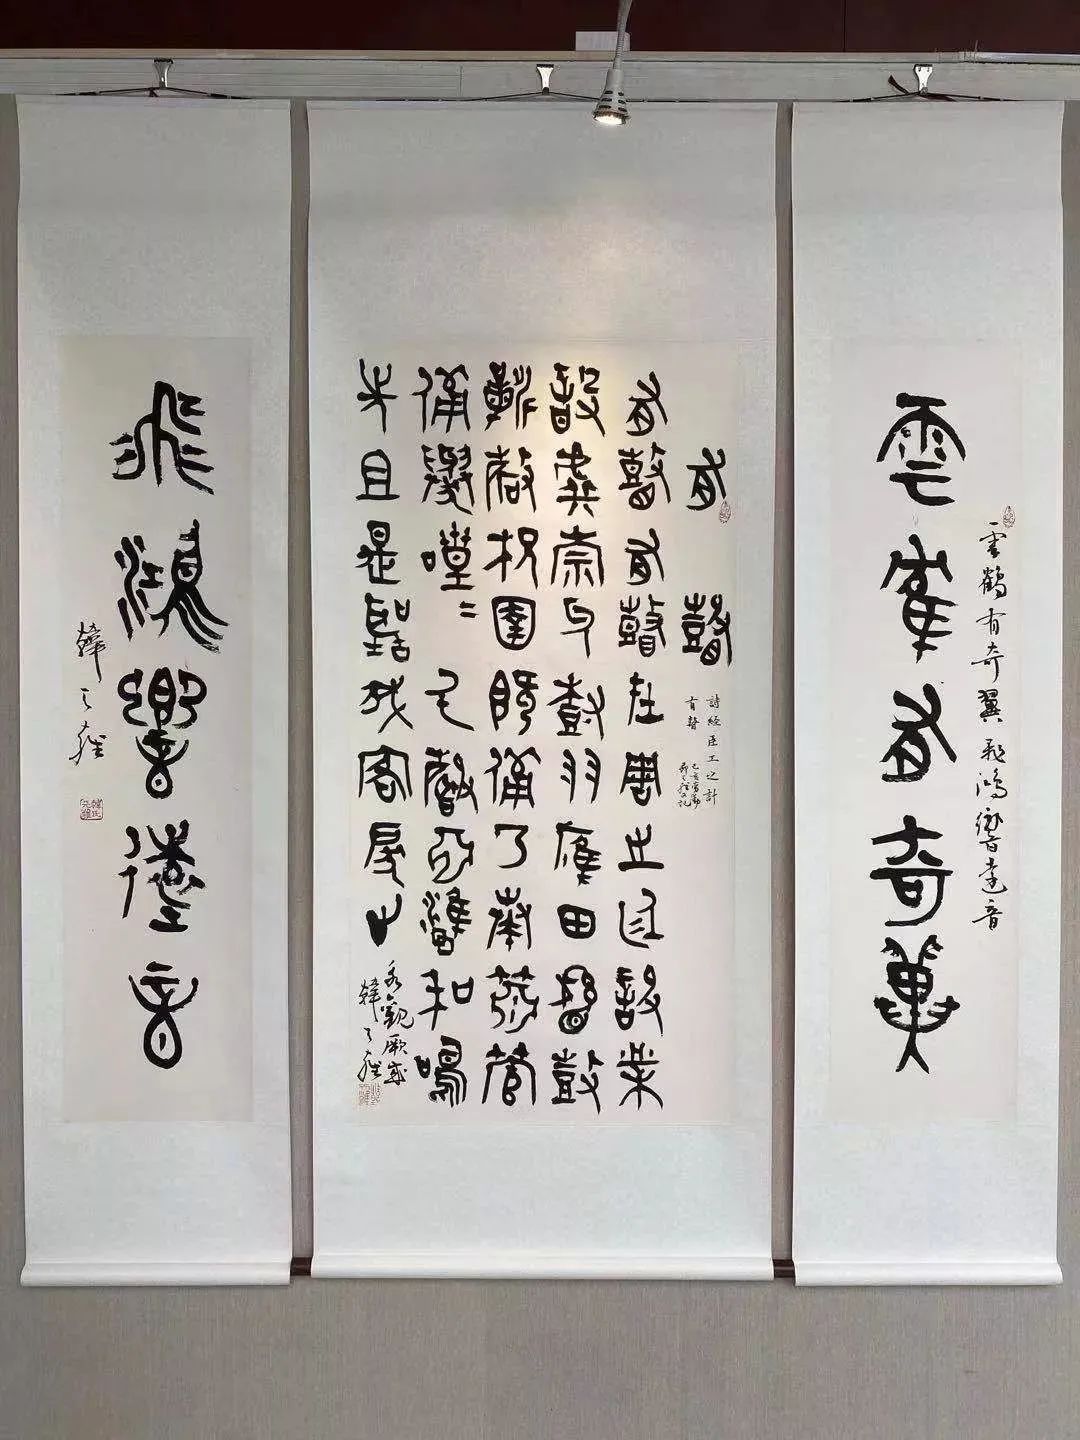 雲鶴有奇翼
雲鶴有奇翼飛鴻響遠音
有瞽
詩經臣工之什
有瞽
有瞽有瞽在周之廷設業
設虡崇牙樹羽應田縣鼓
鞉磬柷圉既備乃奏簫管
備舉喤喤厥聲肅雝和鳴
先且是聽我客戾止
永觀厥成
韓天雍
飛鴻響遠音
韓天雍